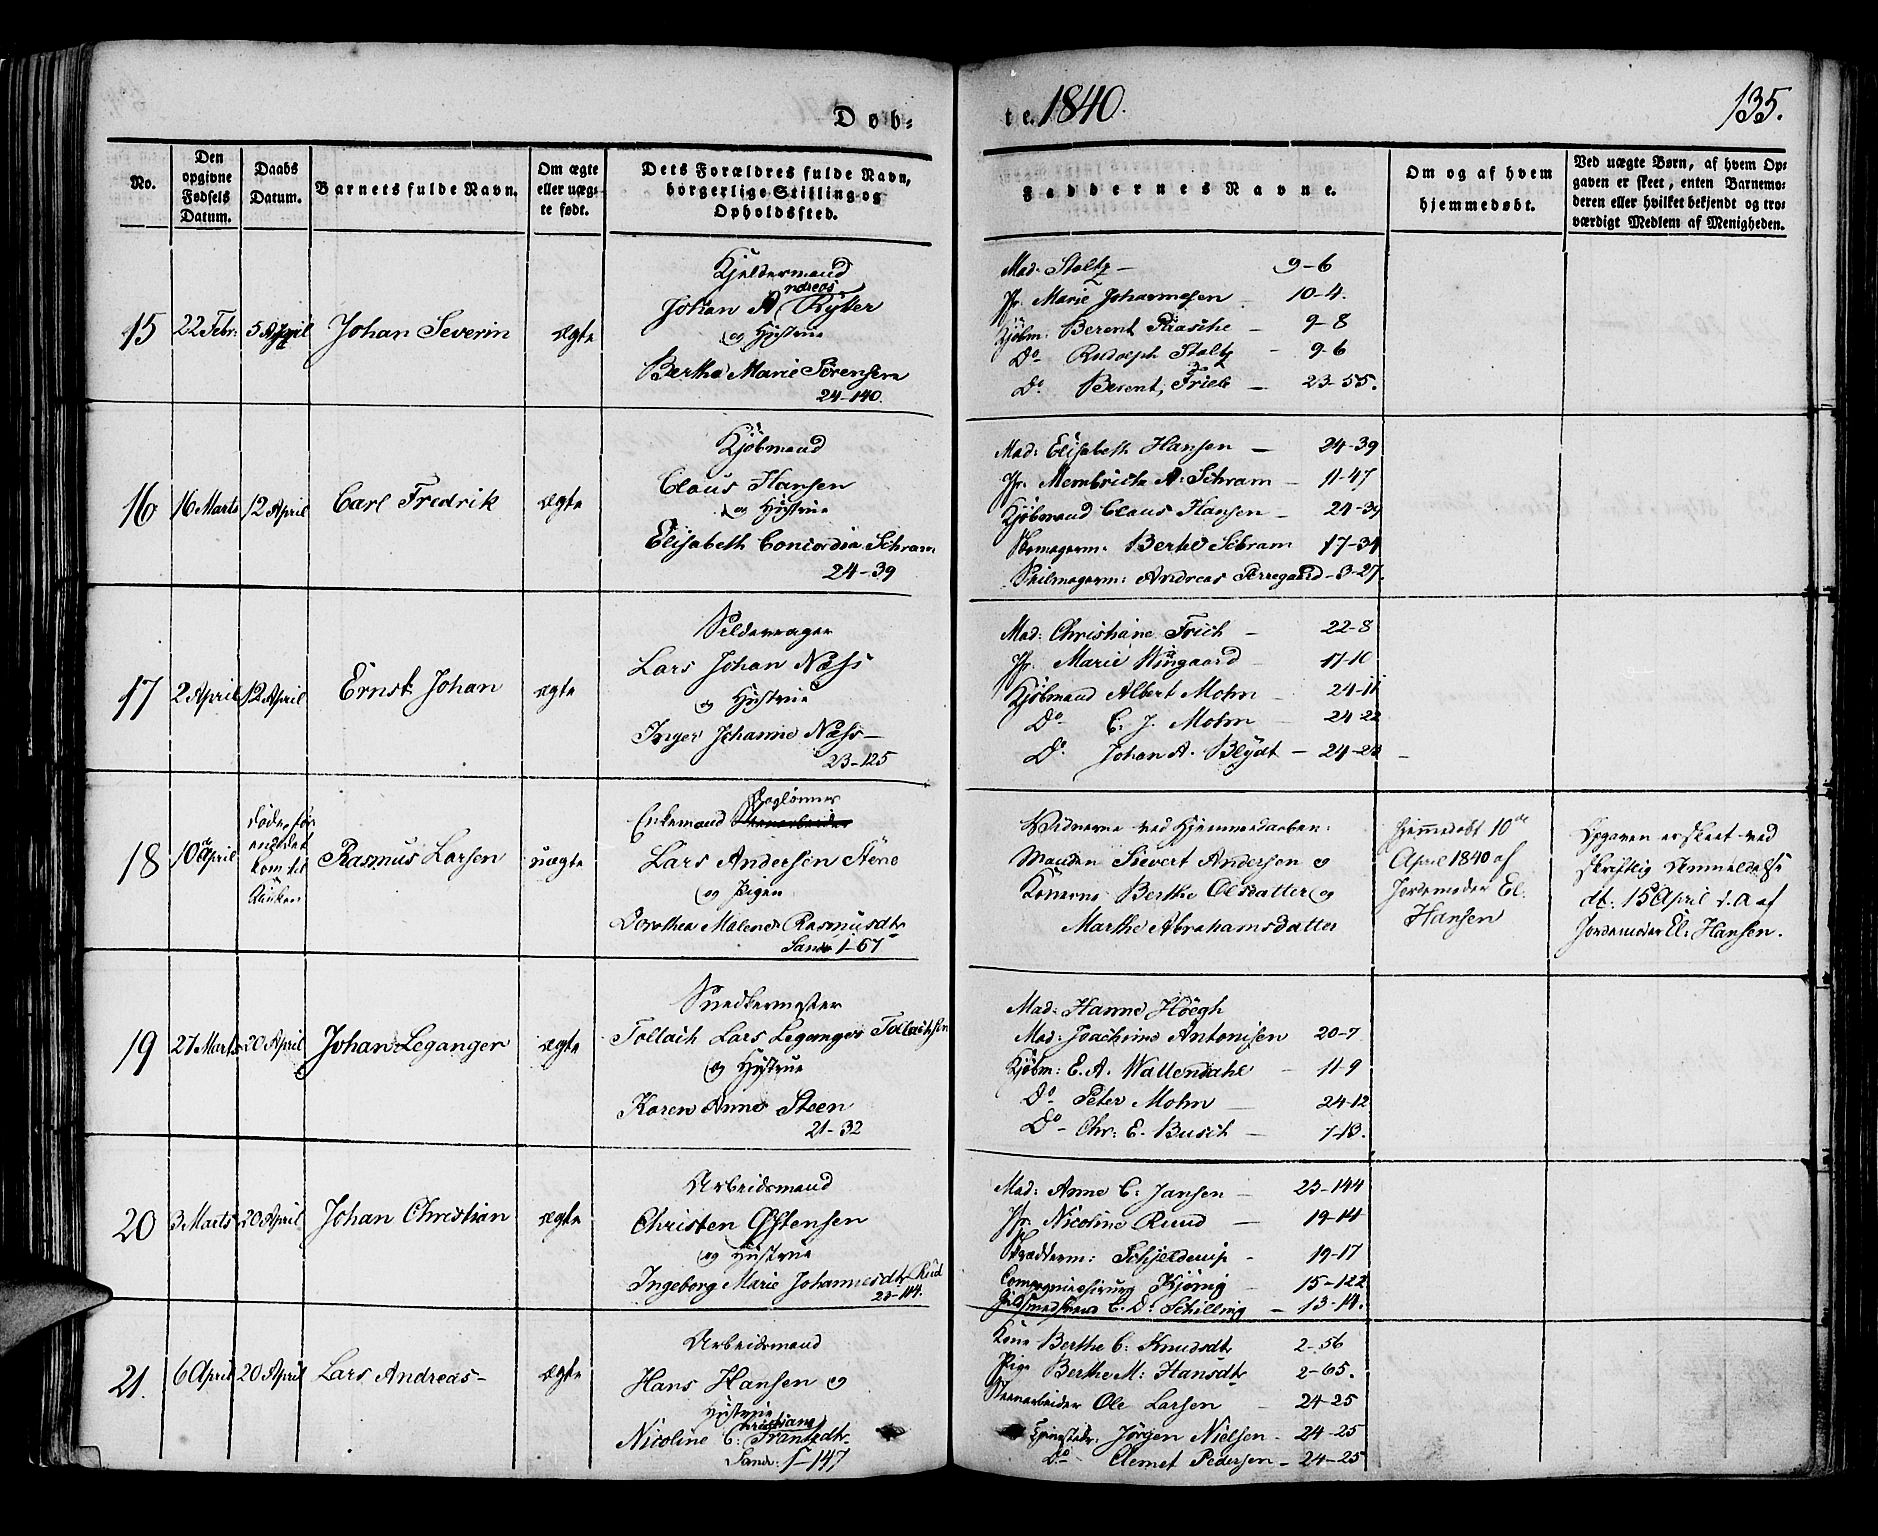 Døb-
te. 1840.
135.
No.
Den
opgivne
Fødsels
Datum.
Daabs
Datum.
Barnets fulde Navn.
Om ægte
eller uæg-
te født.
Dets Forældres fulde Navn,
borgerlige Stilling og
Opholdssted.
Faddernes Navne.
Om og af hvem
hjemmedøbt.
Ved uægte Børn, af hvem Op-
gaven er skeet, enten Barnemo-
deren eller hvilket bekjendt og tro-
værdigt Medlem af Menigheden.
15
22 Febr:
5 April
Johan Severin
ægte
Kjeldermand
ndreas
Johan A Ryter
og Hustrue
Berthe Marie Sørensen
24-140.
Mad: Stoltz – 9-6
Jfr. Marie Johannesen – 10-4.
Kjøbm: Berent Paasche – 9-8
Do Rudolph Stoltz – 9-6
Do Berent, Friele – 23-55.
16
16 Marts
12 April
Carl Fredrik
ægte
Kjøbmand
Claus Hansen
og Hustrue
Elisabeth Concordia Schram
24-39
Mad: Elisabeth Hansen – 24-39
Jfr. A: Schram – 11-47
Kjøbmand Claus Hansen – 24-39
Berhd Schram 17-34
Andreas Perregaard – 3-27.
17
2 April
12 April
Ernst Johan
ægte
Sildevrager
Lars Johan Næss
og Hustrue
Inger Johanne Næss –
23-125
Mad: Christiane Frich – 22-8
Jfr. Marie Wingaard – 17-10
Kjøbmand Albert Mohn – 24-11
Do C. J. Mohn – 24-22
Do Johan A. Blydt – 24-22 –
18
10de April
døde, før
andet
kom til
Kirken
Rasmus Larsen
uægte
Daglønner
Enkemand Steenarbeider
Lars Andersen Stene
og Pigen
Dorothea Malene Rasmusdtr
Sandv 1-67
Vidnerne ved Hjemmedaaben:
Manden Sievert Andersen og
Konerne Berthe Olsdatter og
Marthe Abrahamsdatter
Hjemmedøbt 10de
April 1840 af
Jordemoder El.
Hansen
Opgaven er skeet ved
skriftlig Anmeldelse
dt: 15 April d.A af
Jordemoder El: Hansen.
19
27 Marts
20 April
Johan Leganger
ægte
Snedkermester
Tollach Lars Leganger Tollachsen
og Hustrue
Karen Anne Steen
21-32
Mad: Hanne Höegh
Mad: Joachime Antonisen 20-7
Kjøbm: E. A. Wallendahl – 11-9
Do Peter Mohn – 24-12
Do – Chr: E. Busch – 7-13.
20
3 Marts
20 April
Johan Christian
ægte
Arbeidsmand
Christen Østensen
og Hustrue
Ingeborg Marie Johannesdtr Rud
23-144.
Mad: Anne C: Jansen – 23-144
Jfr. Nicoline Ruud – 19-14
Skrædderm: Schjelderup – 19-17
Compagniechirurg Kjönig – 15-122
Guldsmedsvend C. D: Schilling – 13-14.
21.
6 April
20 April
Lars Andreas –
ægte
Arbeidsmand
Hans Hansen og
Hustrue
hristiane
Nicoline C: Frantzdtr
Sandv: 5-147
Kone Berthe C: Knudsdtr 2-56
Pige Berthe M: Hansdtr 2-65.
Steenarbeider Ole Larsen – 24-25
Jørgen Nielsen – 24-25
Do – Clemet Pedersen – 24-25